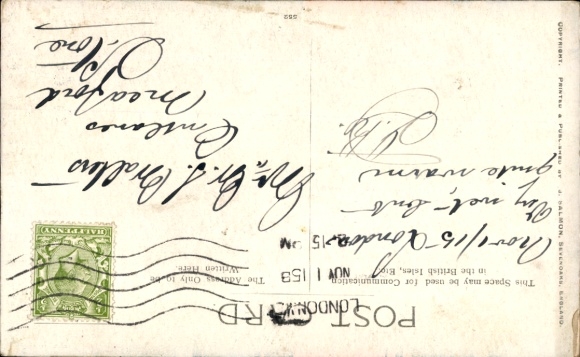 POST CARD
This Space may be used for Communication
in the British Isles, Etc.
The Address Only to be
Written Here.
LONDON
NOV 1 15
2.15 PM
HALFPENNY
Nov 1/15 London
Very wet, but
quite warm
Mr. J.
Meaford
Stone
COPYRIGHT. PRINTED & PUBLISHED BY J. SALMON, SEVENOAKS, ENGLAND.